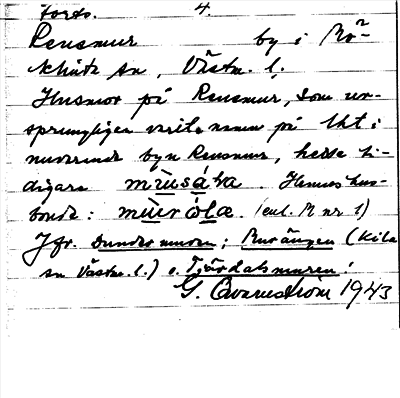 forts. 4.
Rensmur by i Mö²-
klinta sn, Västm. l.
Husmor på Rensmur, som ur-
sprungligen varit namn på tkt i
nuvarande byn Rensmur, hette ti-
digare mùusáka. Hennes hus-
bonde: mùuróla (enl. M nr 1)
Jfr. Dundermuren; Murängen (Kila
sn Västm. l.) o. Tjärdalsmuren!
G. Qvarnström 1943